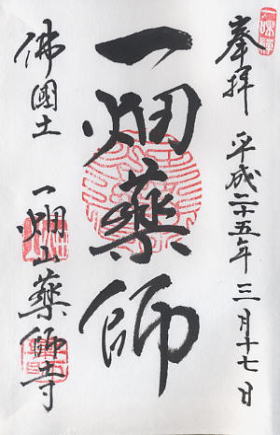 奉拝 平成二十五年三月十七日
一畑薬師
佛國土 一畑山薬師寺